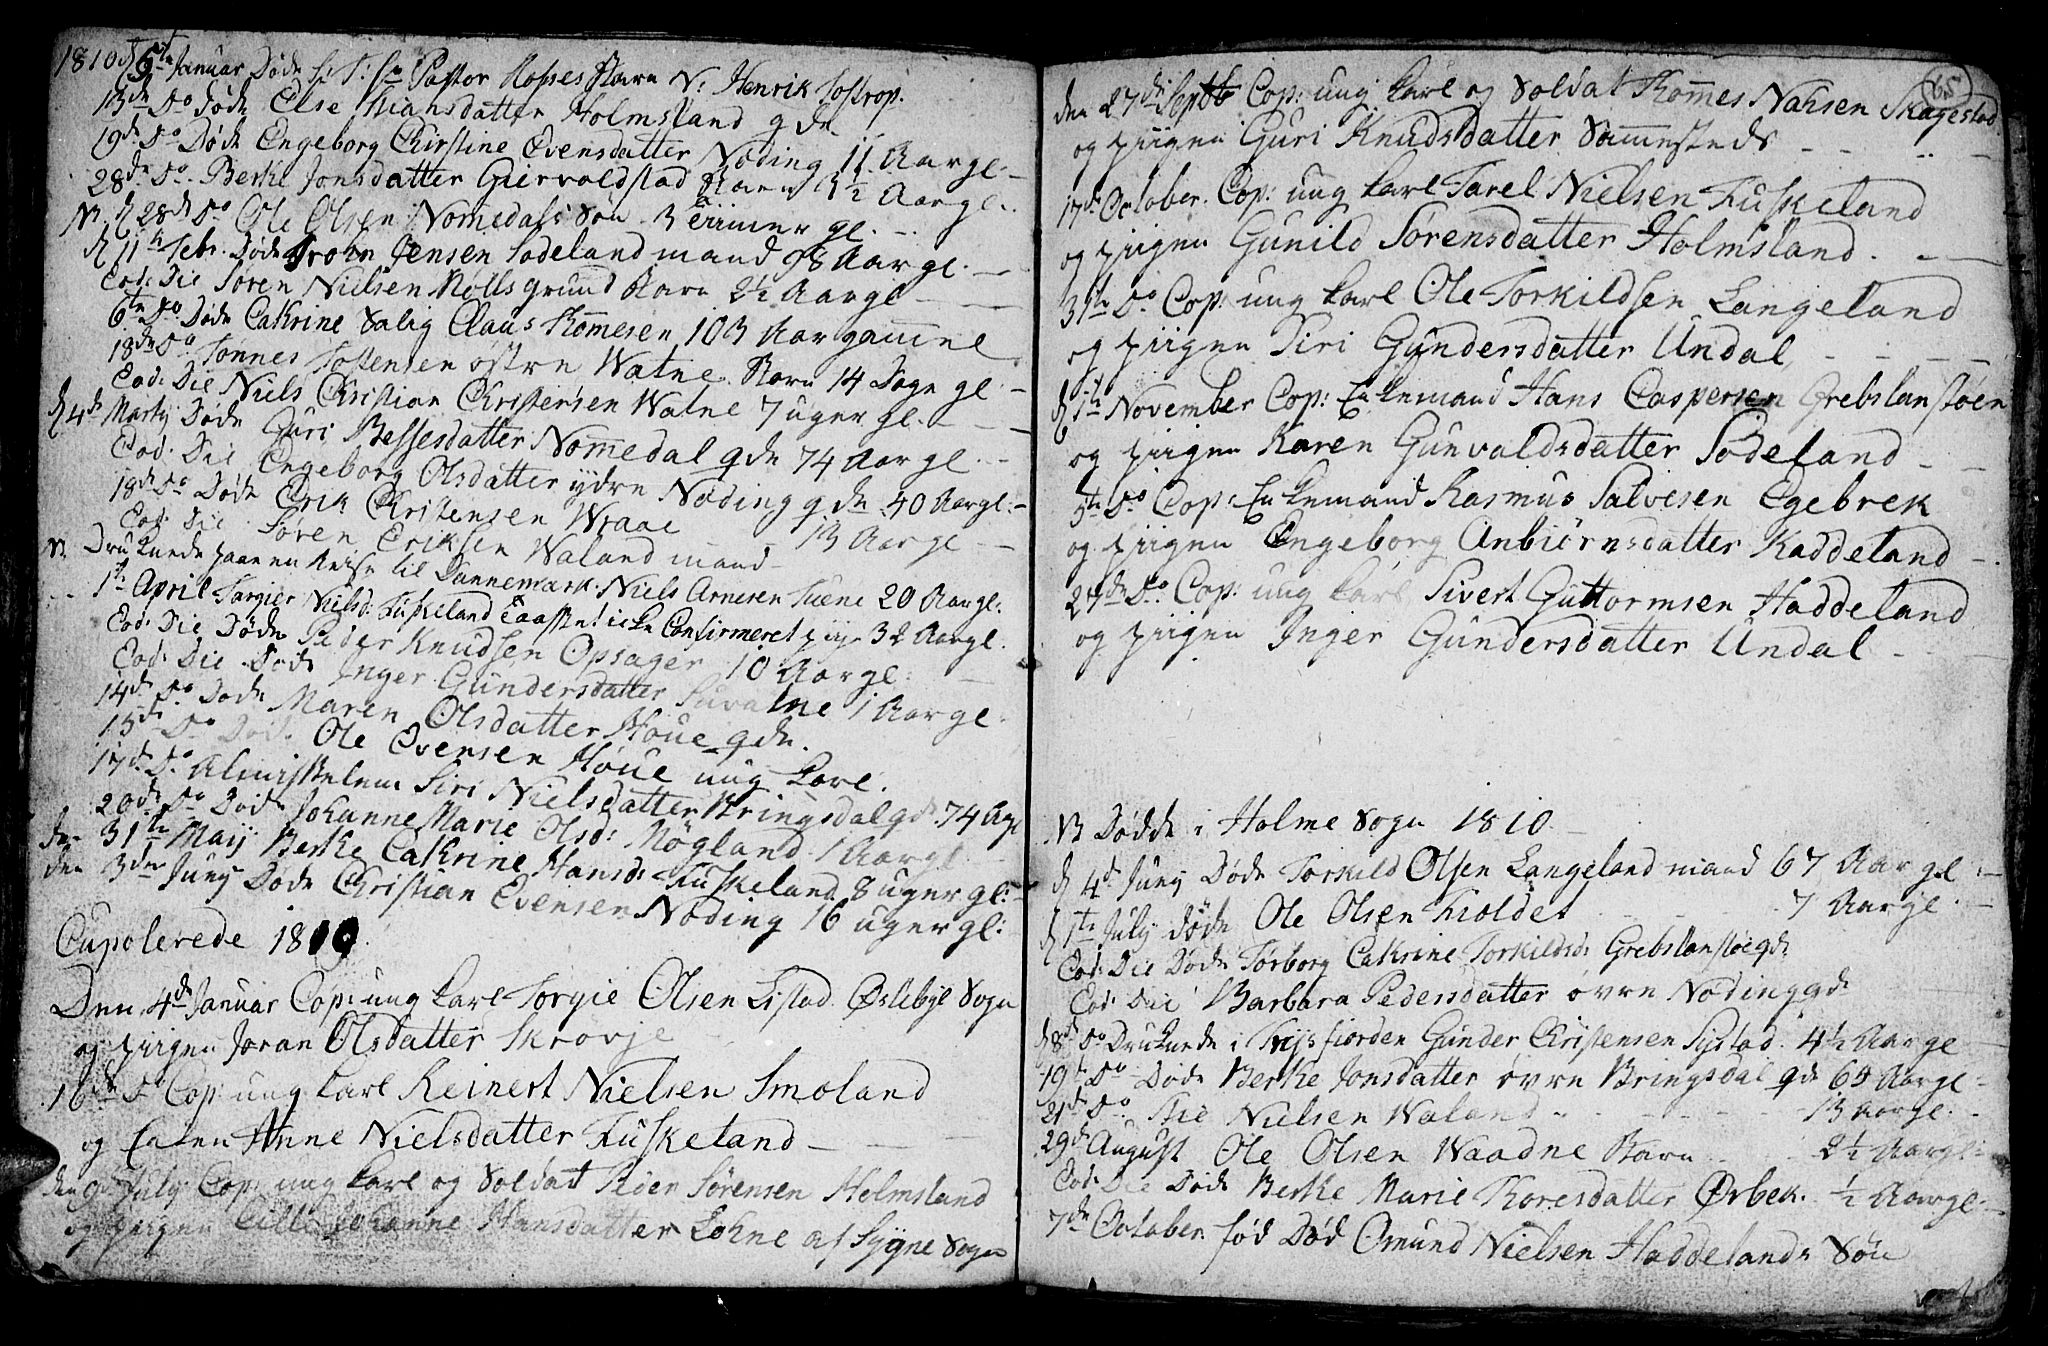 1810 d 5te Januar Døde S: T: Hr Pastor Rosses Barn N: Henrik Tostrop.
13de do Døde Else Hansdatter Holmsland gde
19de do Døde Engeborg Chirstine Evensdatter Nøding 11 Aar gl:
28de do Berthe Jonsdatter Giervoldstad Barn 1½ Aar gl.
NB. d 28de do Ole Olsen Nomedals Søn 3 Timer gl.
d 11te Febr. Døde Jensen Sodeland mand 78 Aar gl.
Eod: Die Søren Nielsen Møllsgrund Barn 2½ Aar gl
6te do Døde Cathrine Salig Claus Thomesen 103 Aar gammel
18de do Tonnes Tostensen østre Watne Barn 14 Dage gl.
Eod: Die Niels Christian Christensen Watne 7 uger gl.
d 4de Marty Døde Guri Bessesdatter Nomedal gde 74 Aar gl.
Eod: Die Engeborg Olsdatter ydre Nøding gde 40 Aar gl.
18de do Døde Erik Christensen Wraae
Eod: Die Søren Eriksen Waland mand 13 Aar gl
NB Druknede paa en Reise til Dannemark: Niels Arnesen Tuene 20 Aar gl:
1te April Targier Nielsd: Tuskeland icke Confirmeret pige 32 Aar gl.
Eod: Die Døde Peder Knudsen Opsager 10 Aar gl:
Eod: Die Døde Inger Gundersdatter 1 Aar gl.
14de do Døde Maren Olsdatter Houe gde.
15de do Døde Ole Evensen Høue ung Karl.
17de do Almisselem Siri Nielsdatter Bringsdal gde 74 Aar
20de do Døde Johanne Marie Olsd: Møgland 1 Aar gl
den 31te Maij Berthe Cathrine Hansd: Tuskeland 8 uger gl:
den 3die Juny Døde Christian Evensen Nøding 16 uger gl:
Cupolerede 1810.
Den 4de Januar Cop: ung Karl Torgie Olsen Listad Øslebye Sogn
og piigen Joran Olsdatter Skrovje
16de do Cop: ung Karl Reinert Nielsen Smoland
og Enken Anne Nielsdatter Tuskeland
den 9de July Cop: ung Karl og Soldat Peder Sørensen Holmsland
og piigen Johanne Hansdatter Lohne af Sygne Sogn
65
den 27de Septb Cop: ung Karl og Soldat Thommes Nahsen Skagestad
og piigen Guri Knudsdatter Sammesteds
17de October Cop: ung Karl Tarel Nielsen Tuskeland
og piigen Gunild Sørensdatter Holmsland.
31te do Cop: ung Karl Ole Torkildsen Langeland
og piigen Siri Gundersdatter Undal
d 1te November Cop: Enkemand Hans Caspersen Grebslanstøen
og piigen Karen Gunvaldsdatter Sodeland
5te do Cop: Enkemand Rasmus Salvesen Egebrek
og piigen Engeborg Anbiørnsdatter Kaddeland
27de do Cop: ung Karl Sivert Guttormsen Haddeland
og piigen Inger Gundersdatter Undal
NB Dødde i Holme Sogn 1810
d 4de Juny Døde Torkild Olsen Langeland mand 67 Aar gl
d 1te July Døde Ole Olsen Kioldet 7 Aar gl.
Eod: Die Døde Torborg Cathrine Torkildsd: Grebslanstøe gde
Eod: Die Barbara Pedersdatter øvre Nøding gde
d 8de do Druknede i Trysfiorden Gunder Christensen Systad 4½ Aar gl
19te do Døde Berthe Jonsdatter øvre Bringsdal gde 69 Aar gl
21de do Nielsen Waland 13 Aar gl.
29de August Ole Olsen Waadne Barn 2½ Aar gl:
Eod: Die Døde Berthe Marie Thoresdatter Ørbek ½ Aar gl.
7de October fød Død Osmund Nielsen Haddelands Søn